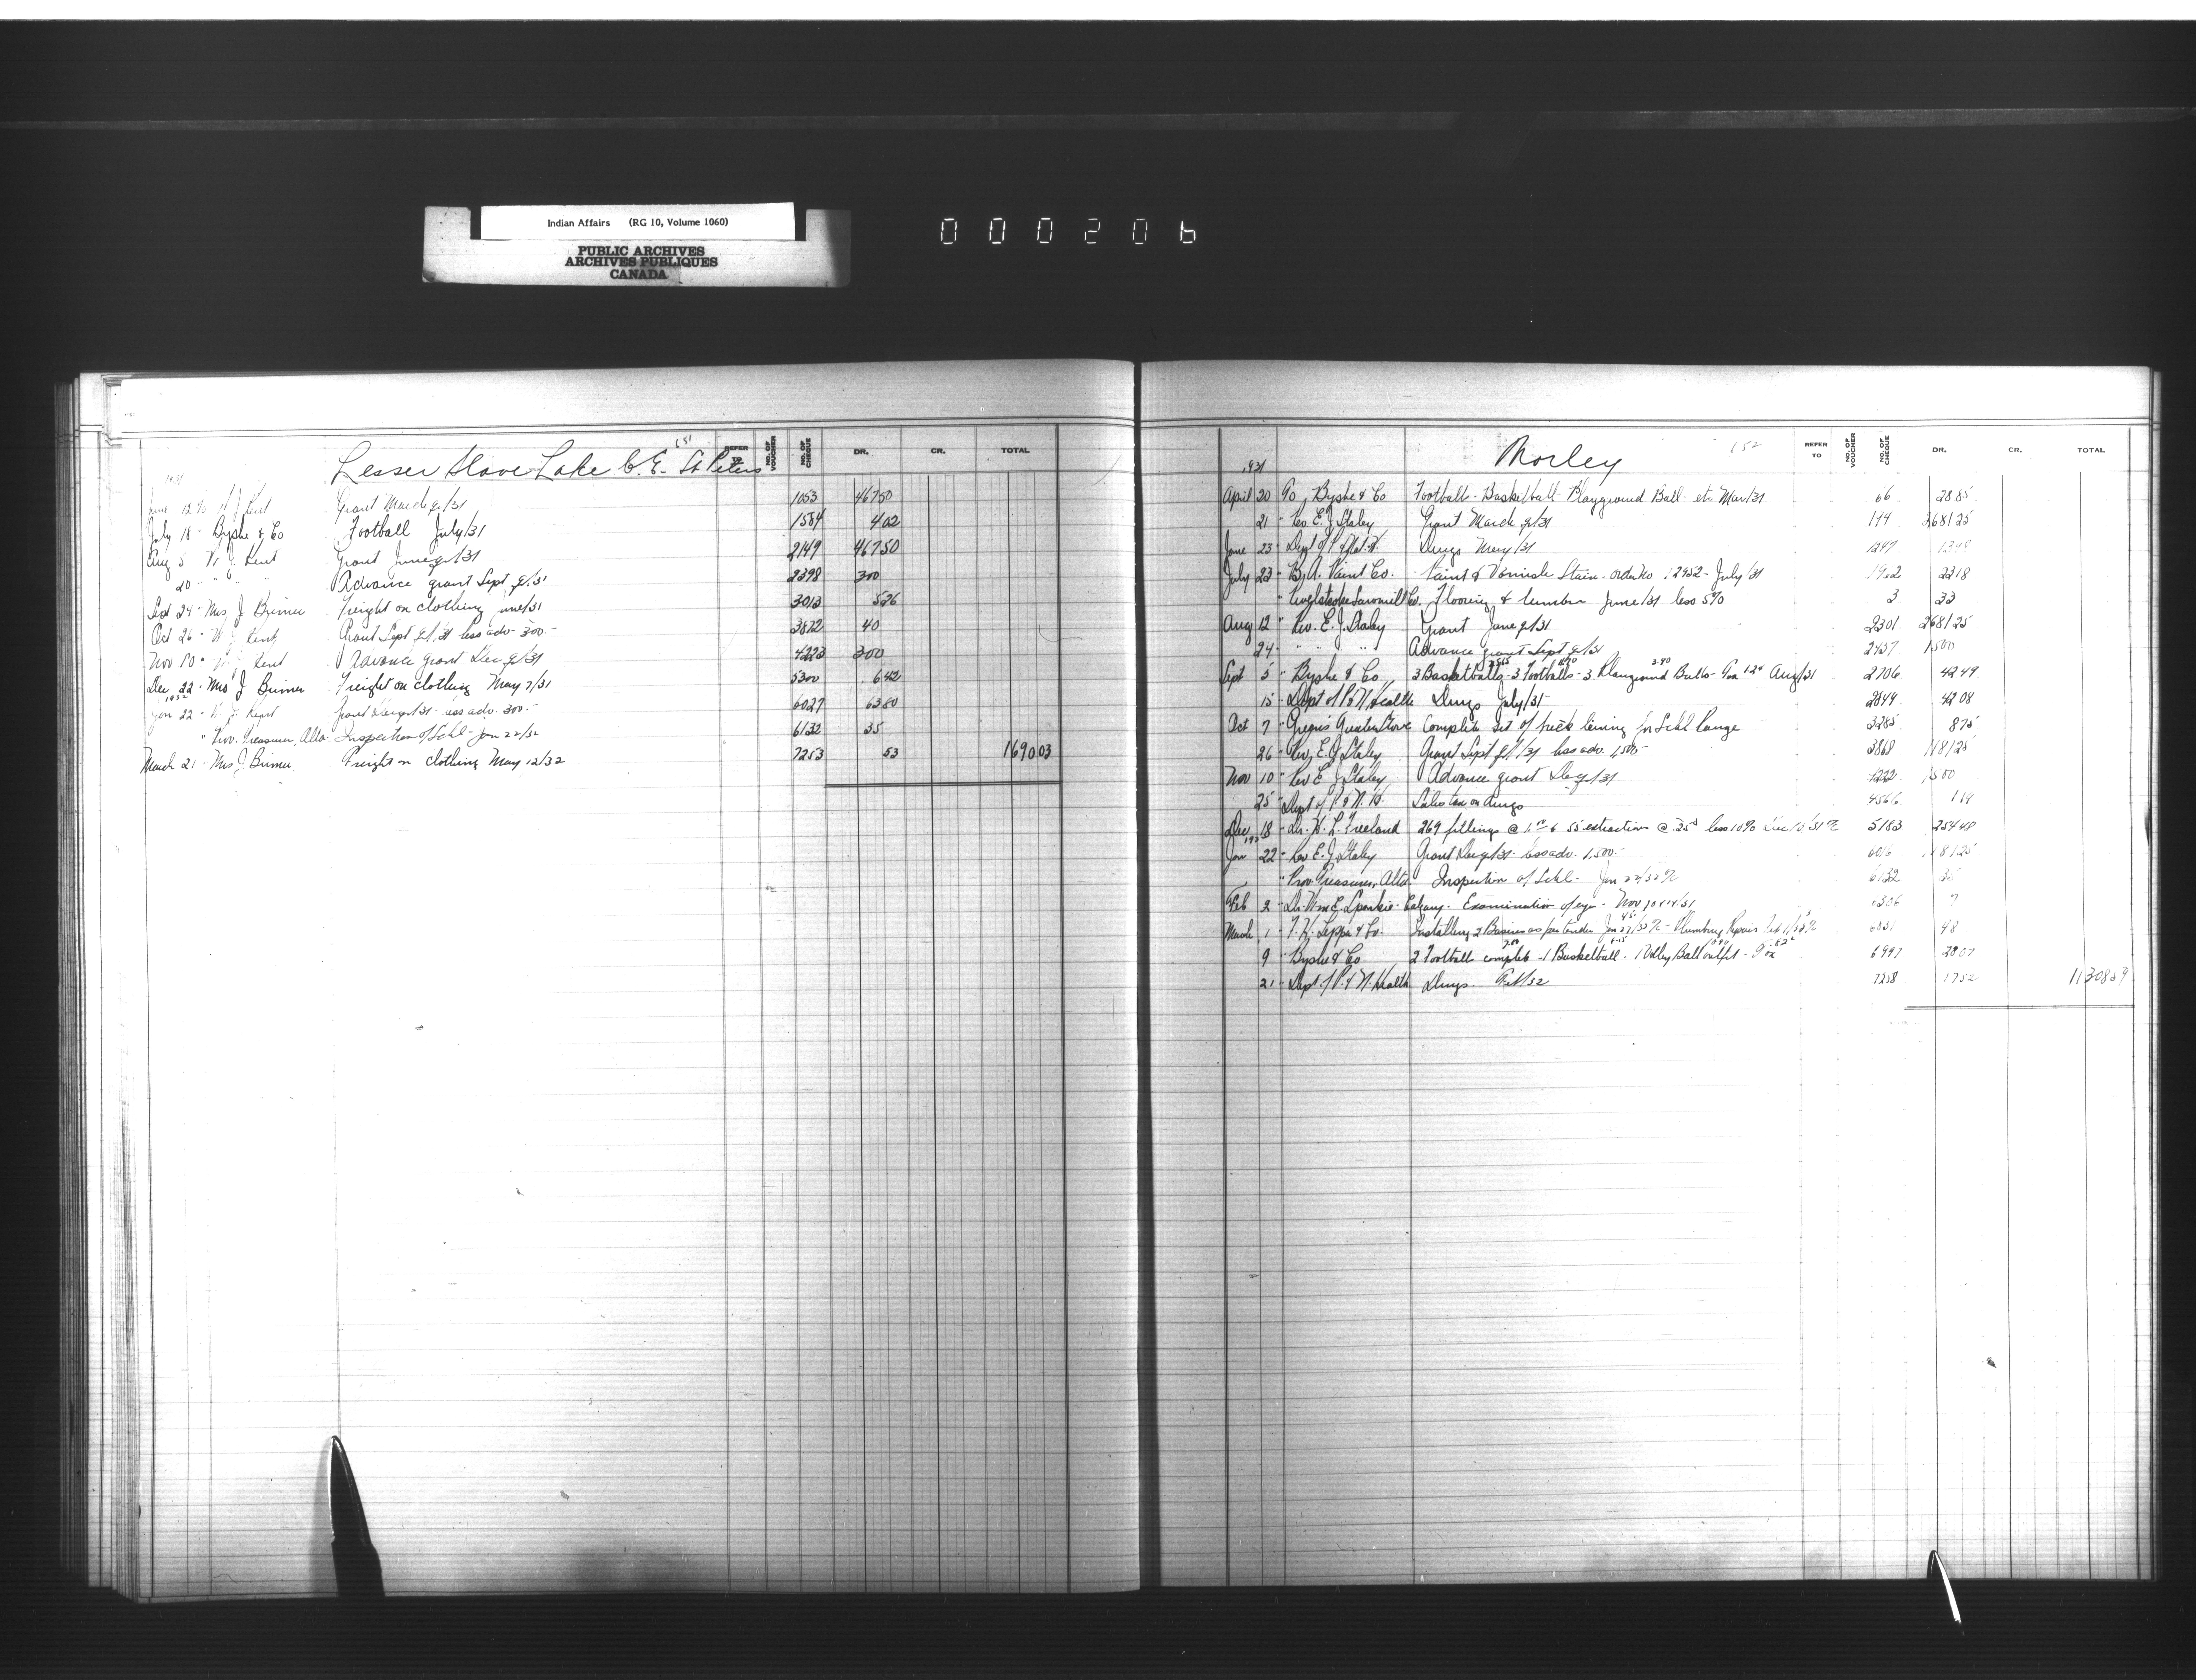 Indian Affairs (RG 10, Volume 1060)
PUBLIC ARCHIVES
ARCHIVES PUBLIQUES
CANADA
000206
151
Lesser Slave Lake C.E. St Peters
REFER TO NO. OF VOUCHER NO. OF CHEQUE DR. CR. TOTAL
1931
June 12 W J Kent Grant March q/31 1053 467 50
July 18 " Byshe & Co Football July/31 1584 4 02
Aug 5 W. J. Kent Grant June q/31 2149 467 50
20 " " " Advance grant Sept q/31 2398 300
Sept 24 " Mrs J Brimer Freight on clothing June/31 3013 5 26
Oct 26 " W. J. Kent Grant Sept q/31 less adv. 300.- 3872 40
Nov 10 " W J Kent Advance grant Dec q/31 4223 300
Dec 22 " Mrs J Brimer Freight on clothing May 7/31 5300 6 42
1932
Jan 22 " W. J. Kent Grant Dec q/31 less adv. 300.- 6027 63 80
" Prov. Treasurer, Alta. Inspection of Schl - Jan 22/32 6132 35
March 21 " Mrs J Brimer Freight on clothing May 12/32 7253 53 1690 03
152
Morley
REFER TO NO. OF VOUCHER NO. OF CHEQUE DR. CR. TOTAL
1931
April 20 Byshe & Co Football - Basketball - Playground Ball - etc Mar/31 66 28 85
21 " Rev E. J. Staley Grant March q/31 144 2681 25
June 23 " Dept of P. & Nat. H. Drugs May/31 1247
July 23 " B. A. Paint Co. Paint & Varnish Stain - order No 12952 - July/31 23 18
" Revelstoke Sawmill Co. Flooring & lumber June/31 less 5% 3 33
Aug 12 " Rev. E. J. Staley Grant June q/31 2301 2681 25
24 " " " " Advance grant Sept q/31 2457 1500
Sept 5 " Byshe & Co 3 Basketballs - 3 Footballs - 3 Playground Balls - Aug/31 2706 42 49
15 " Dept of P. & N. Health Drugs July/31 2844 42 08
Oct 7 " Greggs Complete set of brick lining for Schl Range 3285 8 75
26 " Rev. E. J. Staley Grant Sept q/31 less adv. 1,500- 3869 1181 25
Nov 10 " Rev E J Staley Advance grant Dec q/31 4222 1500
25 " Dept of P. & N. H. Sales tax on drugs 4566 1 19
Dec 18 " Dr. W. L. Freeland 269 fillings @ 1.00 & 55 extraction @ 25¢ less 10% 5183
Jan 22 " Rev E. J. Staley Grant Dec q/31 less adv. 1,500.- 6016 1181 25
" Prov. Treasurer, Alta. Inspection of Schl - Jan 22/32 6132 35
Feb 2 " Dr. Wm E. Spankie - Calgary - Examination of eyes - Nov 7
March 1 " Installing 2 Basins as per tender Jan 27/32 - Plumbing Repairs 48
9 " Byshe & Co 2 Football complete - 1 Basketball - 1 Volley Ball outfit - 6997 28 07
21 " Dept of P. & N. Health Drugs Feb/32 7258 17 52 11308 89